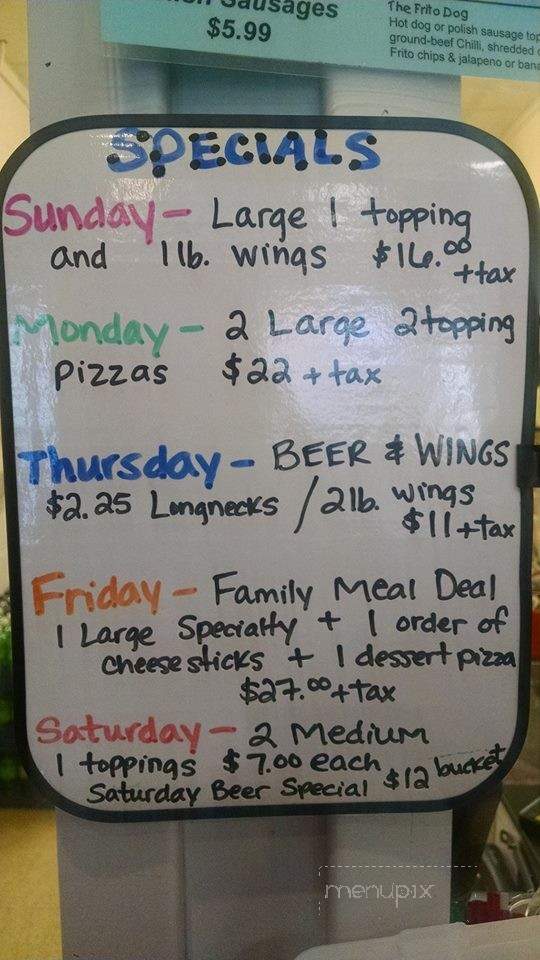 Sausages
$5.99
The Frito Dog
Hot dog or polish sausage top
ground-beef Chilli, shredded
Frito chips & jalapeno or bana
SPECIALS
Sunday - Large 1 topping
and 1 lb. wings $16.00
+tax
Monday - 2 Large 2 topping
Pizzas $22 + tax
Thursday - BEER & WINGS
$2.25 Longnecks / 2lb. wings
$11+tax
Friday - Family Meal Deal
1 Large Specialty + 1 order of
cheese sticks + 1 dessert pizza
$27.00 + tax
Saturday - 2 Medium
1 toppings $7.00 each
Saturday Beer Special $12 bucket
menupix